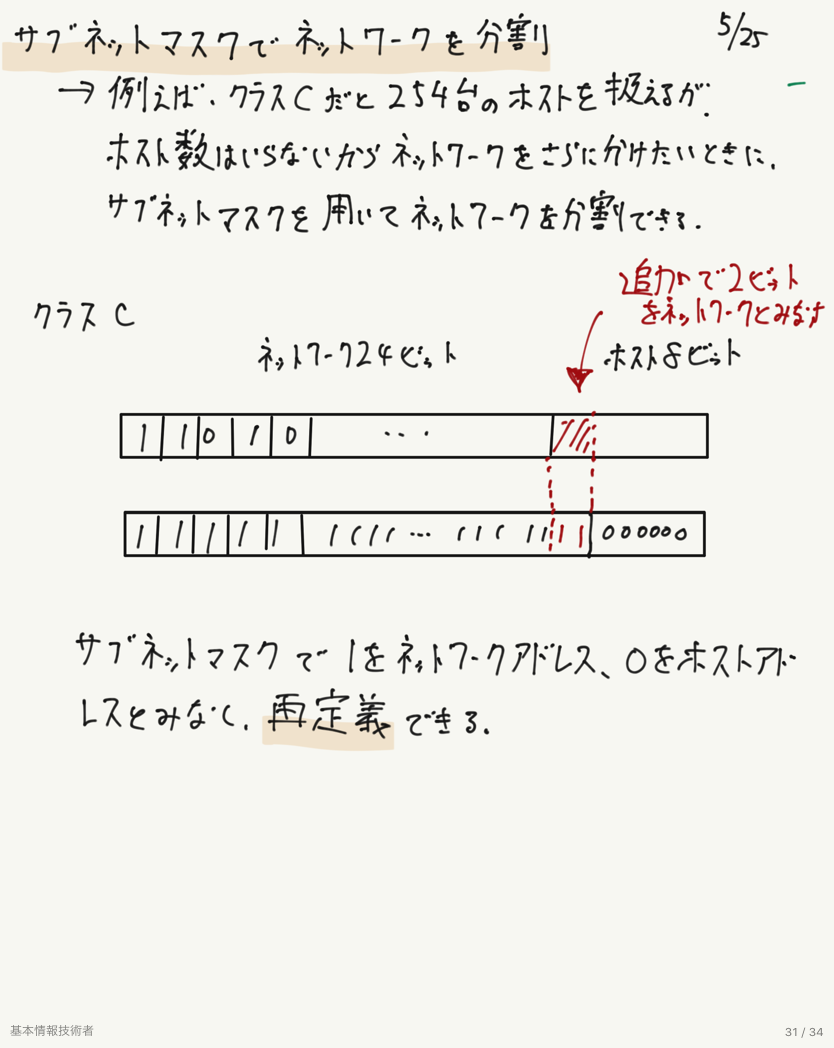 サブネットマスクでネットワークを分割
5/25
→ 例えば、クラスCだと254台のホストを扱えるが、
ホスト数はいらないからネットワークをさらに分けたいときに、
サブネットマスクを用いてネットワークを分割できる.
追加で2ビット
をネットワークとみなす
クラス C
ネットワーク24ビット
ホスト8ビット
1 1 0 1 0 ...
1 1 1 1 1 1 1 1 1 ... 1 1 1 1 1 1 1 0 0 0 0 0 0
サブネットマスクで 1をネットワークアドレス、0をホストアド
レスとみなし、再定義できる.
基本情報技術者
31 / 34